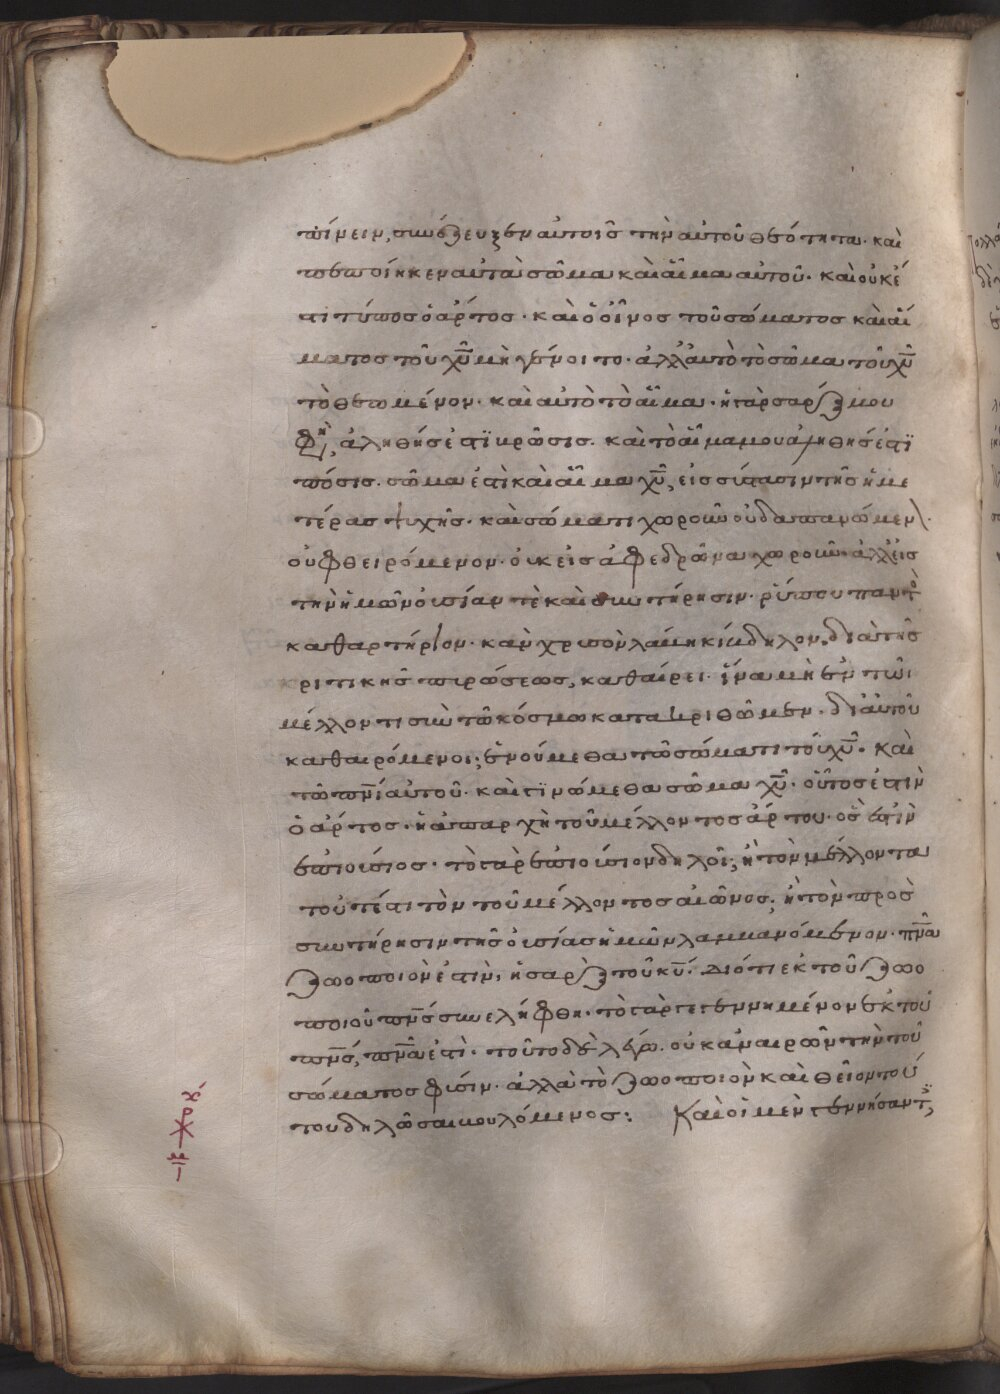 πίνειν, συνέζευξεν αὐτοῖς τὴν αὐτοῦ θεότητα. καὶ
πεποίηκεν αὐτὰ σῶμα καὶ αἷμα αὐτοῦ. καὶ οὐκέ
τι τύπος ὁ ἄρτος. καὶ ὁ οἶνος τοῦ σώματος καὶ αἵ
ματος τοῦ χῦ μὴ γένοιτο. ἀλλ' αὐτὸ τὸ σῶμα τοῦ χῦ
τὸ θεωμένον. καὶ αὐτὸ τὸ αἷμα. ἡ γὰρ σαρξ μου
φη, ἀληθής ἐστι βρῶσις. καὶ τὸ αἷμα μου ἀληθής ἐστι
πόσις. σῶμα ἐστὶ καὶ αἷμα χῦ, εἰς σύστασιν τῆς ἡμε
τέρας ψυχῆς. καὶ σώματι χωροῦν οὐ δαπανώμεν
οὐ φθειρόμενον. οὐκ εἰς ἀφεδρῶνα χωροῦν ἀλλ' εἰς
τὴν ἡμῶν οὐσίαν τὲ καὶ συντήρησιν. ῥύπου παντο
καθαρτήριον. κἂν χρυσὸν λάβη κίβδηλον, διὰ τῆς
κριτικῆς πυρώσεως, καθαίρει. ἵνα μὴ ἐν τῶι
μέλλοντι σὺν τῶ κόσμω κατακριθῶμεν. δι' αὐτοῦ
καθαιρόμενοι, ἑνούμεθα τῶ σώματι τοῦ χῦ. καὶ
τῶ πνι αὐτοῦ. καὶ γινώμεθα σῶμα χῦ. οὗτος ἐστὶν
ὁ ἄρτος. ἡ ἀπαρχὴ τοῦ μέλλοντος ἄρτου. ὅς ἐστὶν
ἐπιούσιος. τὸ γὰρ ἐπιούσιον δηλοῖ, ἢ τὸν μέλλοντα
τουτέστι τὸν τοῦ μέλλοντος αἰῶνος. ἢ τὸν πρὸς
συντήρησιν τῆς οὐσίας ἡμῶν λαμβανόμενον. πνα
ζωοποιὸν ἐστὶν, ἡ σαρξ τοῦ κυ. διότι ἐκ τοῦ ζωο
ποιοῦ πνς συνελήφθη. τὸ γὰρ γεγεννημένον ἐκ τοῦ
πνς, πνα ἐστὶ. τοῦτο δὲ λέγω. οὐκ ἀναιρῶν τὴν τοῦ
σώματος φύσιν. ἀλλὰ τὸ ζωοποιὸν καὶ θεῖον τού
του δηλῶσαι βουλόμενος: Καὶ οἱ μὲν γεννήσαντ,